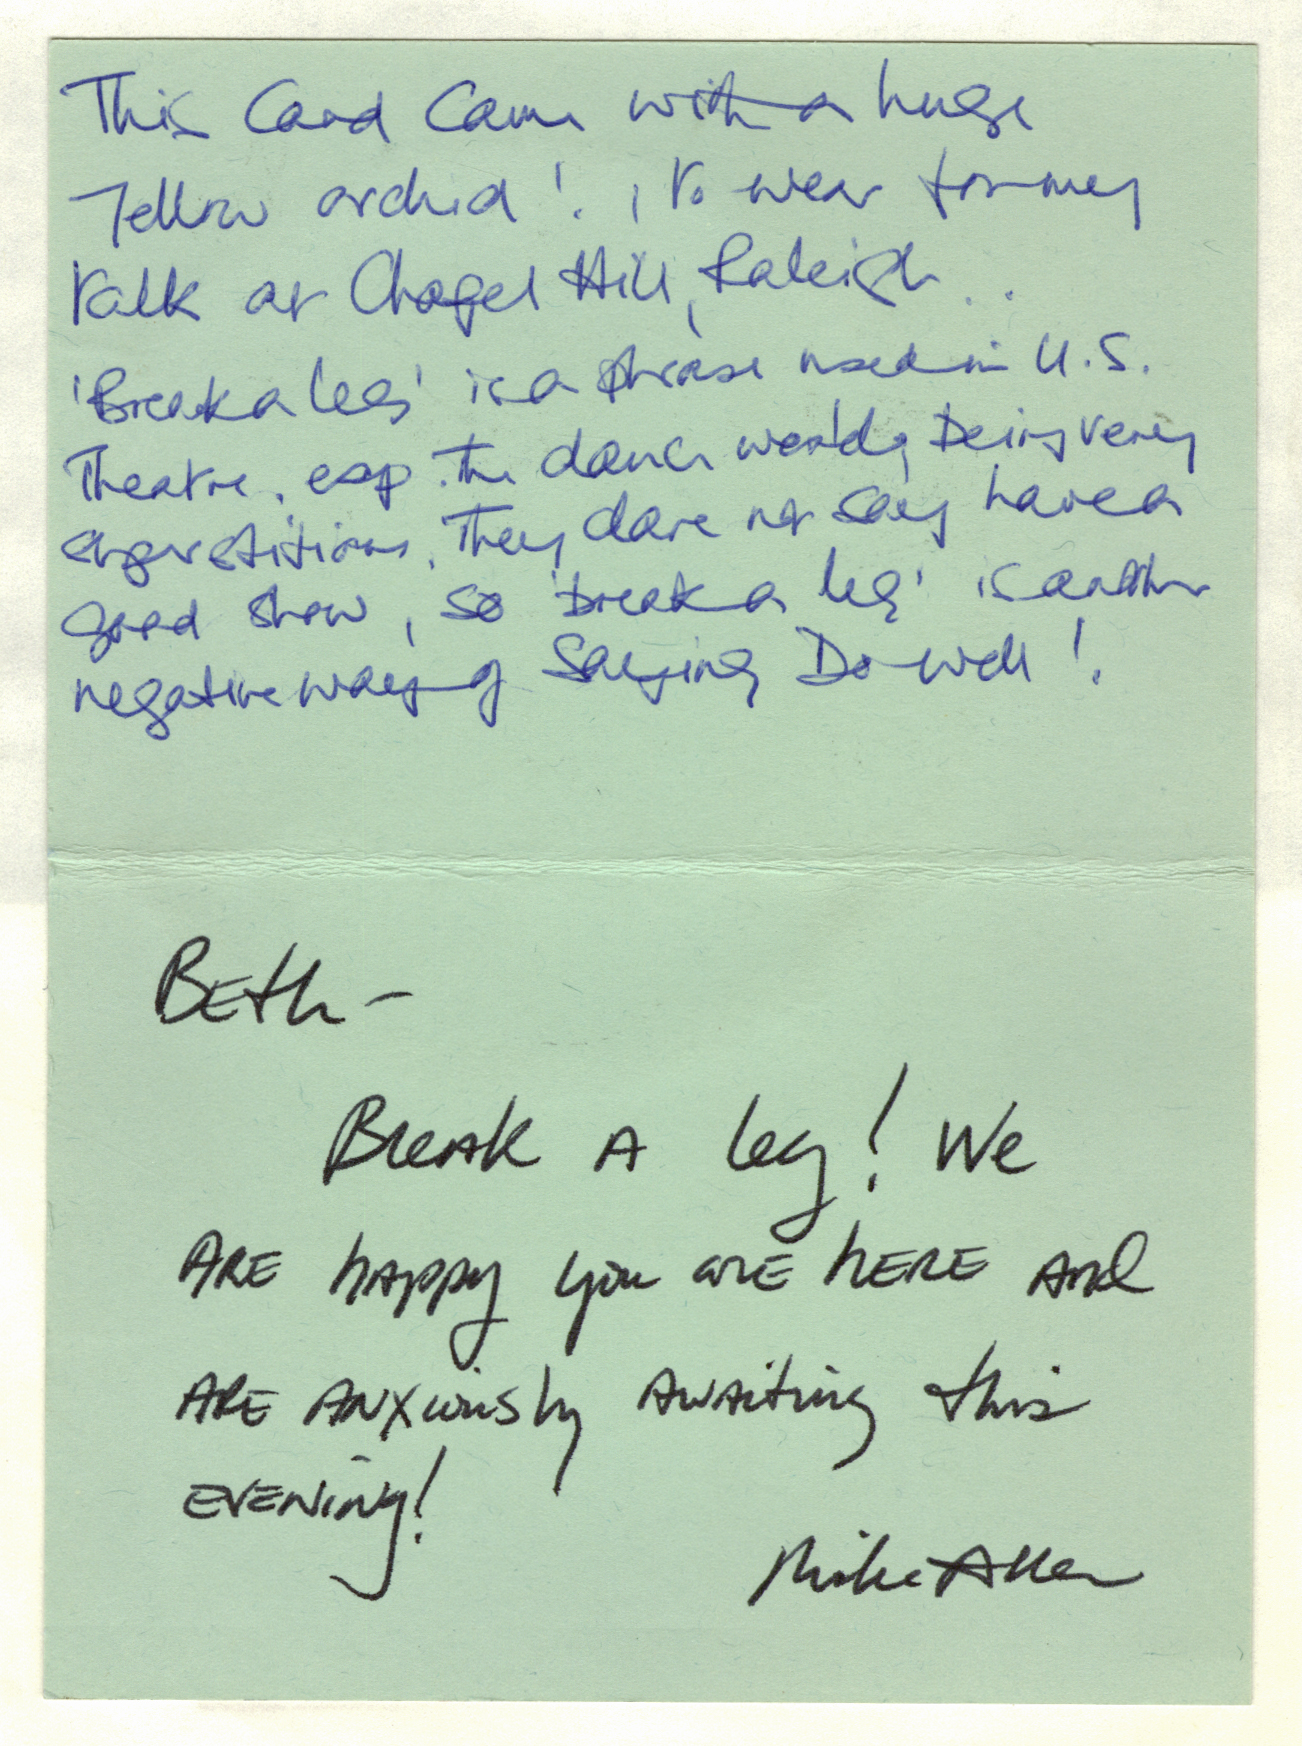 This Card Came with a huge
Yellow orchid! , to wear for my
talk at Chapel Hill, Raleigh . .
'Break a leg' is a phrase used in U.S.
Theatre, esp. the dance world, being very
superstitious. They dare not say have a
good show, so 'break a leg' is another
negative way of Saying Do well!.
Beth -
Break A leg! We
ARE happy you are here And
ARE Anxiously Awaiting this
EVENing!
Mike Allen